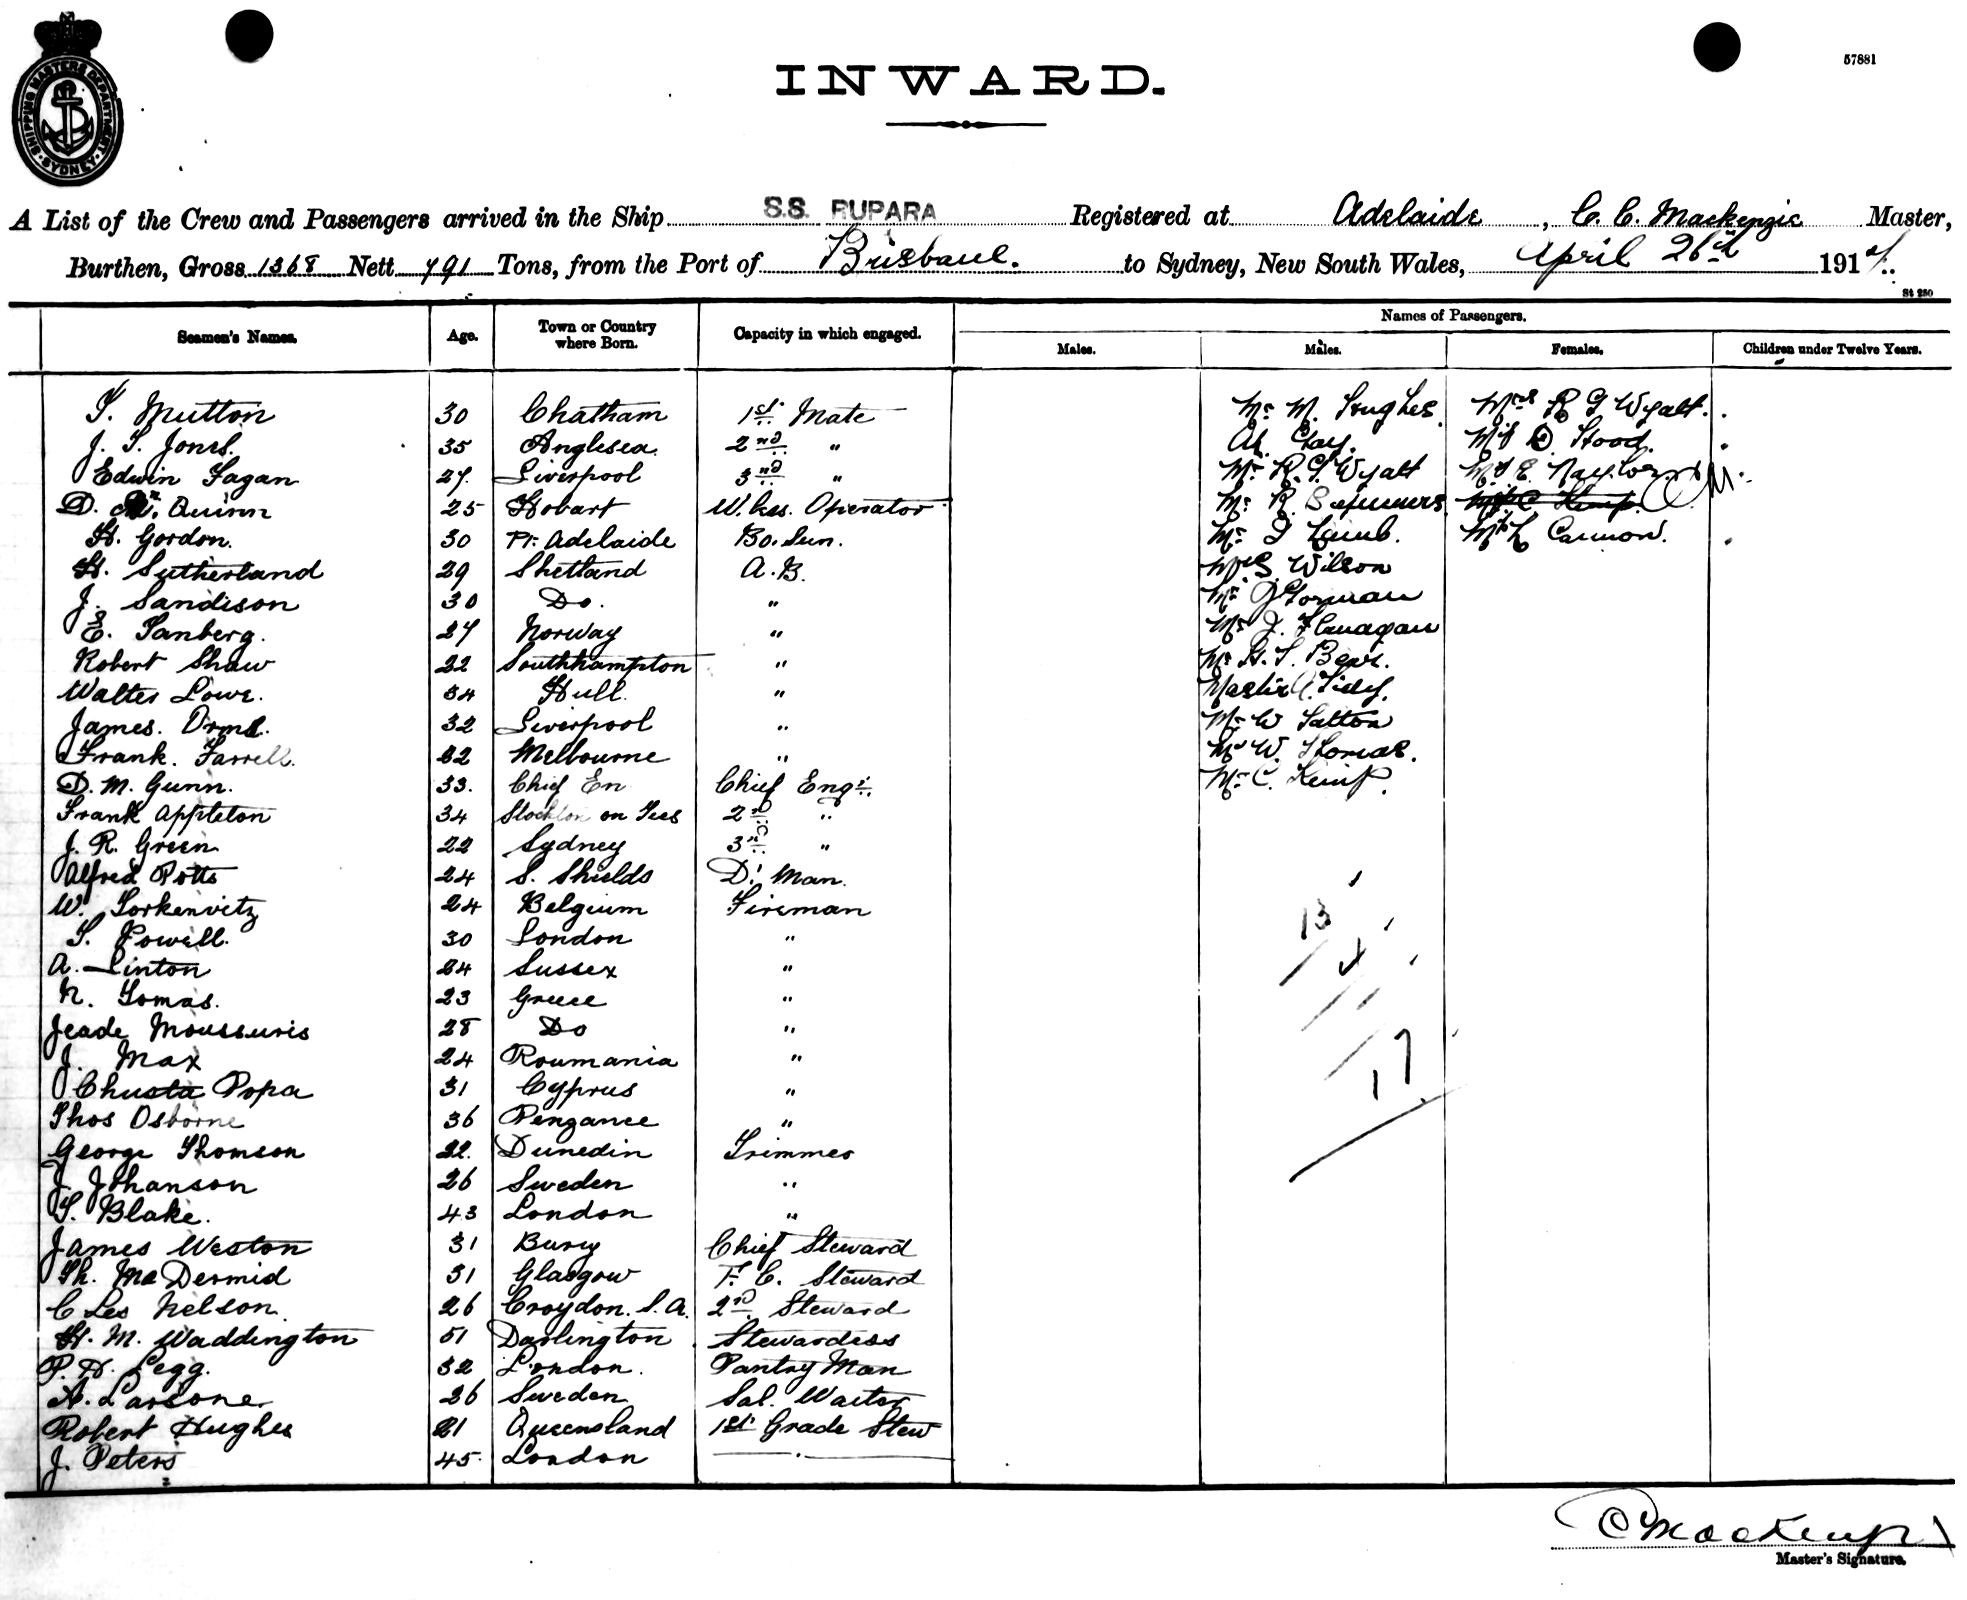 SHIPPING MASTERS DEPARTMENT SYDNEY
57881
INWARD.
A List of the Crew and Passengers arrived in the Ship S.S. RUPARA Registered at Adelaide, C. C. Mackenzie Master,
Burthen, Gross 1368 Nett 791 Tons, from the Port of Brisbane. to Sydney, New South Wales, April 26th 191
St 280
Seamen's Names. Age. Town or Country where Born. Capacity in which engaged. Names of Passengers.
Males. Males. Females. Children under Twelve Years.
T. Mutton 30 Chatham 1st Mate Mr M. Hughes Mrs R G Wyatt.
J. T. Jones. 35 Anglesea. 2nd " Ah
Edwin Fagan 27. Liverpool 3rd " Mr R. G Wyatt
D. Mc. Quinn 25 Hobart W. less. Operator Mr R.
H. Gordon. 30 Pt. Adelaide Bo. Sun. Mr Lamb. Cannon.
H. Sutherland 29 Shetland A. B. Wilson
J. Sandison 30 Do. " Mr Gorman
E. Sanberg. 27 Norway " Mr J. Flanagan
Robert Shaw 22 Southhampton " Mr H. S.
Walter Lowe. 34 Hull. " Master
James. Orme. 32 Liverpool " Mr W
Frank. Farrell. 22 Melbourne " Mr W. Thomas.
D. M. Gunn. 33. Chief En Chief Engr. Mr C. Kemp.
Frank Appleton 34 Stockton on Tees 2nd "
J. R. Green 22 Sydney 3rd "
Alfred Potts 24 S. Shields D. Man.
W. Lorkenvitz 24 Belgium Fireman 13
T. Powell. 30 London " 4
A. Linton 24 Sussex "
N. Tomas. 23 Greece "
Jeade Moussuris 28 Do " 17
J. Max 24 Roumania "
Chusta Popa 31 Cyprus "
Thos Osborne 36 Penzance "
George Thomson 22. Dunedin Trimmer
J. Johanson 26 Sweden "
T. Blake. 43 London "
James Weston 31 Bury Chief Steward
Th. McDermid 31 Glasgow F. C. Steward
C Les Nelson 26 Croydon. S. A. 2nd Steward
H. M. Waddington 51 Darlington Stewardess
P. H. Pegg. 32 London. Pantry Man
A. Larsone 26 Sweden Sal. Waiter
Robert Hughes 21 Queensland 1st Grade Stew
J. Peters 45 London
C Mackenzie
Master's Signature.